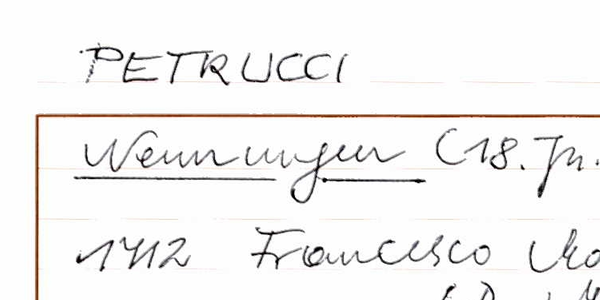 PETRUCCI
Nennungen (18. Jh.
1712 Francesco